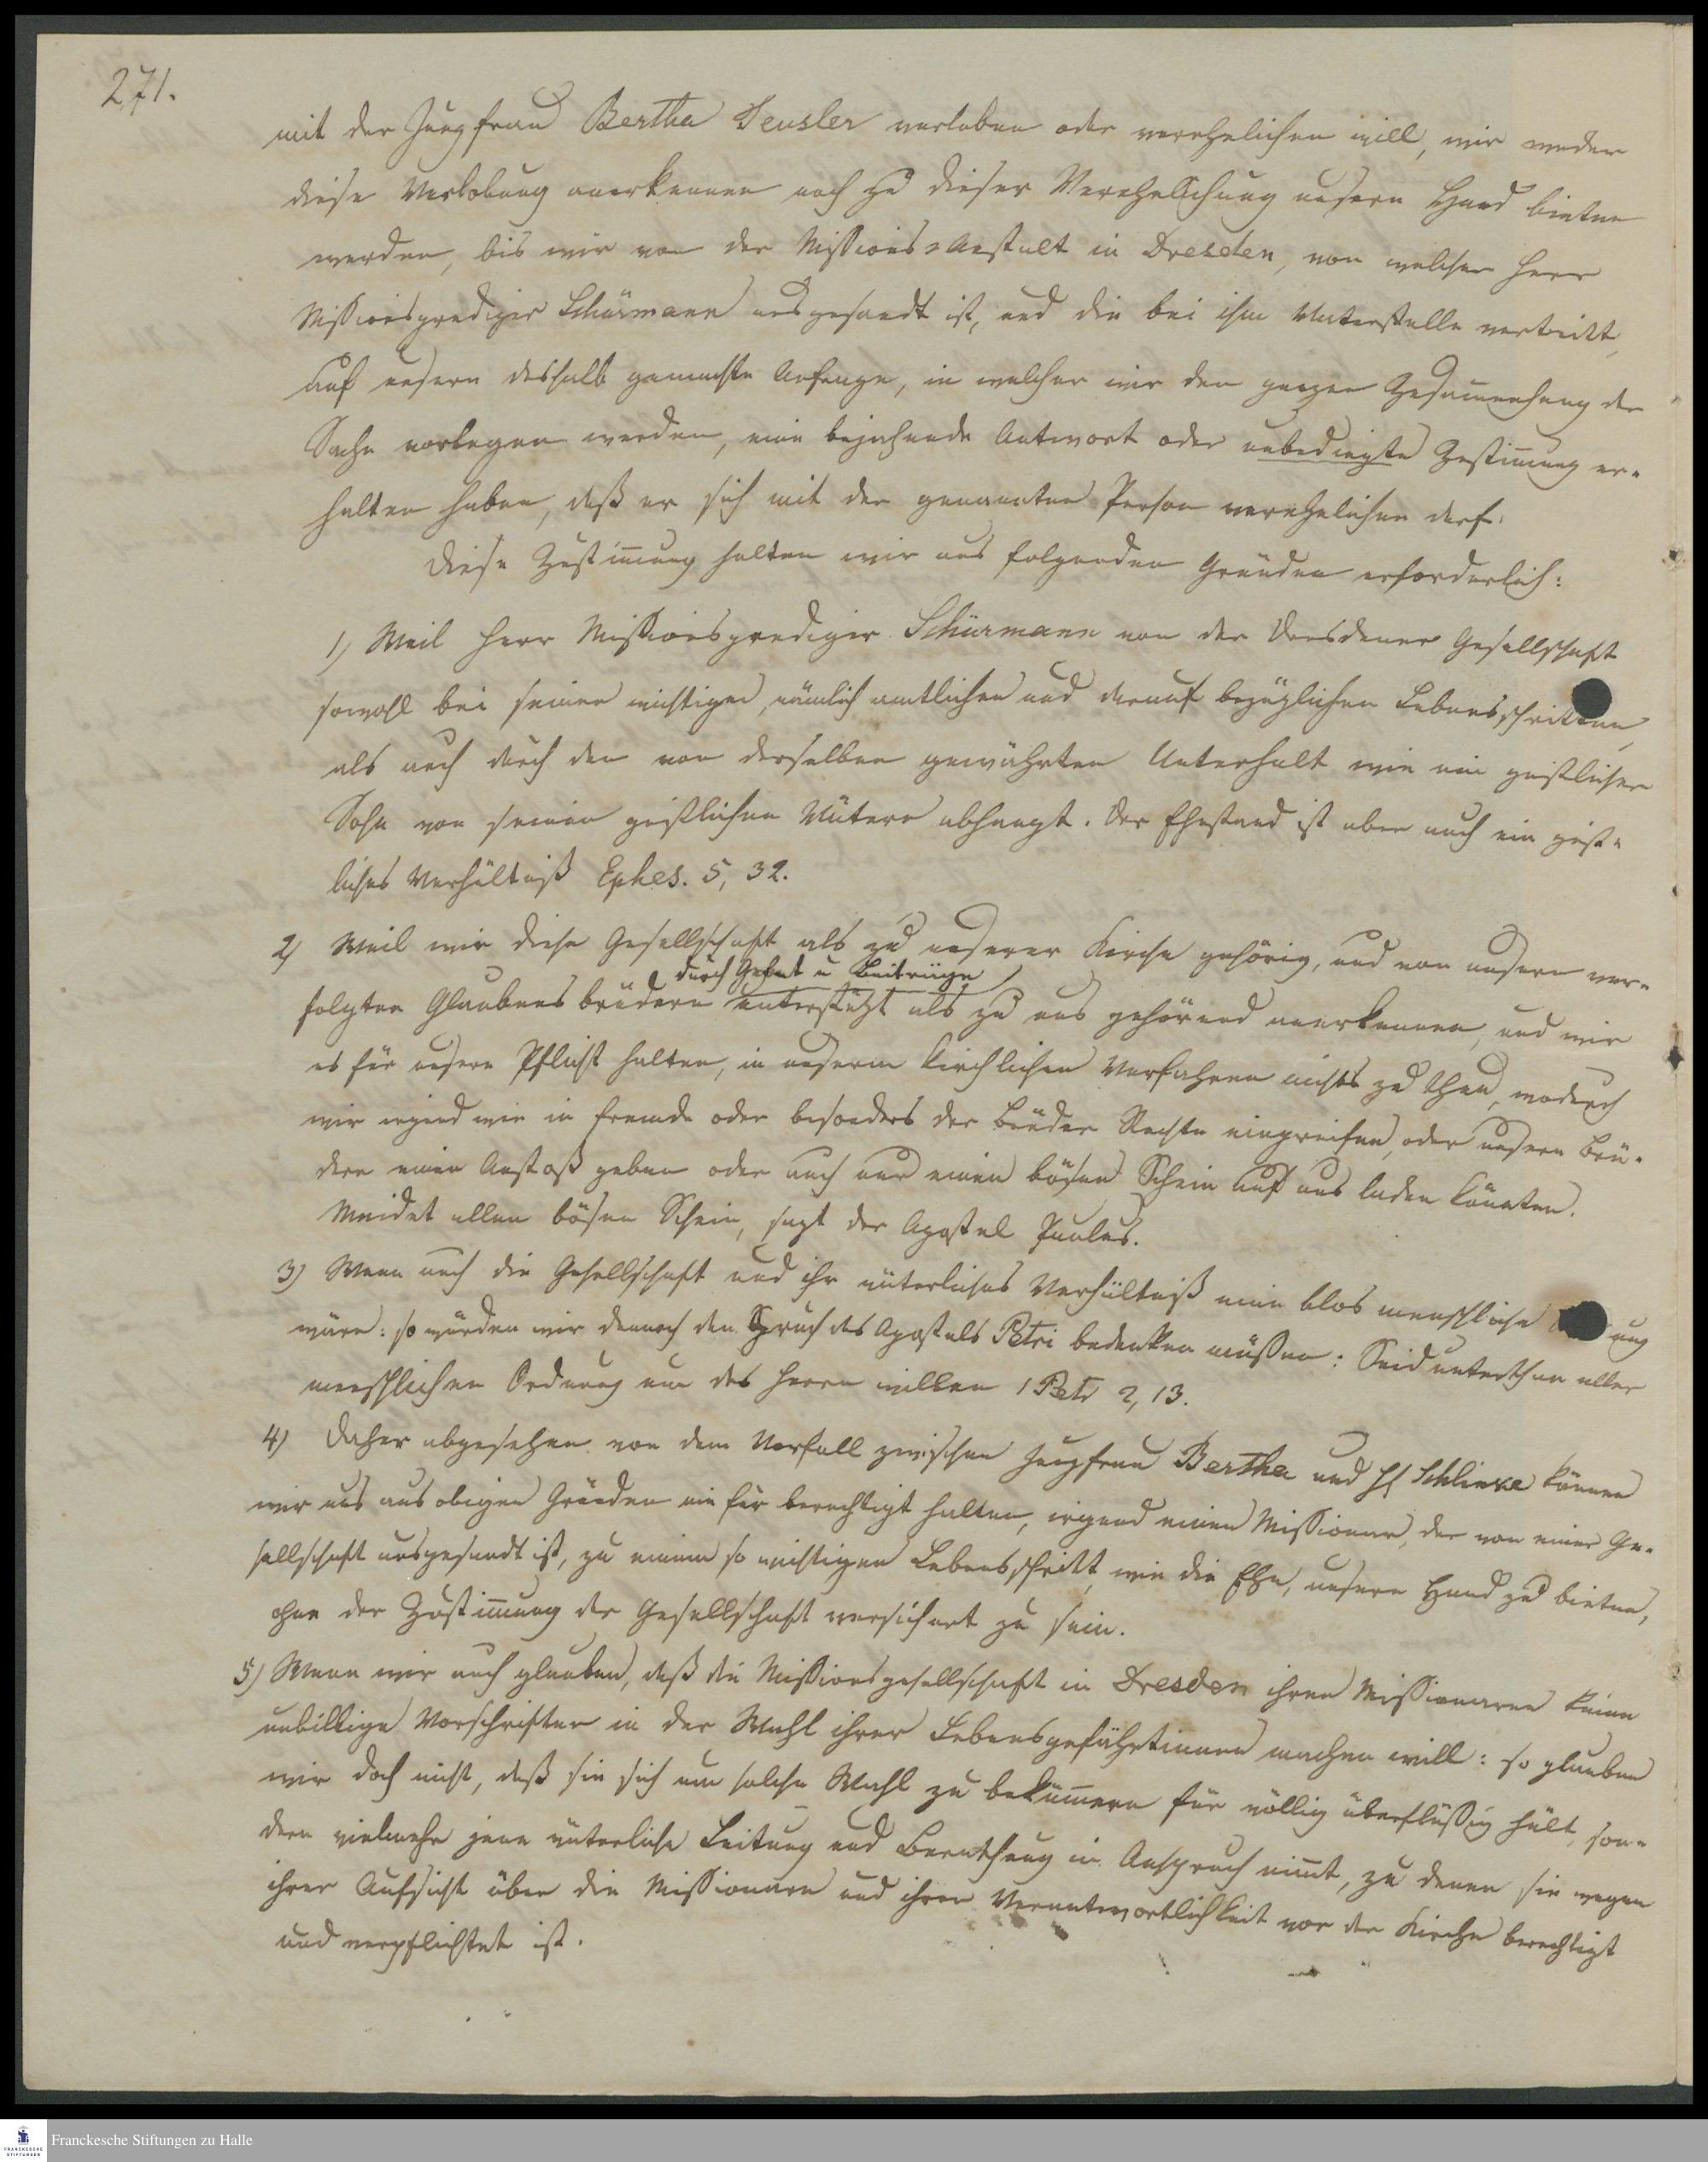 271.
mit der Jungfrau Bertha Teusler verloben oder verehelichen will, wir weder
diese Verlobung anerkennen noch zu dieser Verehelichung unsere Hand bieten
werden, bis wir von der Missions-Anstalt in Dresden, von welcher Herr
Missionsprediger Schürmann ausgesandt ist, und die bei ihm Vaterstelle vertritt,
auf unsere deshalb gemachte Anfrage, in welcher wir den ganzen Zusam̄enhang der
Sache vorlegen werden, eine bejahende Antwort oder unbedingte Zustim̄ung er-
halten haben, daß er sich mit der genannten Person verehelichen darf.
Diese Zustim̄ung halten wir aus folgenden Gründen erforderlich:
1) Weil Herr Missionsprediger Schürmann von der Dresdener Gesellschaft
sowohl bei seinen wichtigen, nämlich amtlichen und darauf bezüglichen Lebensschritten,
als auch durch den von derselben gewährten Unterhalt wie ein geistlicher
Sohn von seinen geistlichen Vätern abhangt. Der Ehestand ist aber auch ein geist-
liches Verhältniß Ephes. 5, 32.
2) Weil wir diese Gesellschaft als zu unserer Kirche gehörig, und von unsern ver-
durch Gebet u Beiträge
folgten Glaubensbrüdern unterstützt als zu uns gehörend anerkennen, und wir
es für unsere Pflicht halten, in unserm kirchlichen Verfahren nichts zu thun, wodurch
wir irgend wie in fremde oder besonders der Brüder Rechte eingreifen, oder unsern Brü-
dern einen Anstoß geben oder auch nur einen bösen Schein auf uns laden könnten.
Meidet allen bösen Schein, sagt der Apostel Paulus.
3) Wenn auch die Gesellschaft und ihr väterliches Verhältniß eine blos menschliche ung
wäre: so würden wir dennoch den Spruch des Apostels Petri bedenken müßen: Seid unterthan aller
menschlichen Ordnung um des Herrn willen 1 Petr 2, 13.
4) Daher abgesehen von dem Vorfall zwischen Jungfrau Bertha und H Schlinke können
wir uns aus obigen Gründen nie für berechtigt halten, irgend einem Missionar, der von einer Ge-
sellschaft ausgesandt ist, zu einem so wichtigen Lebensschritt, wie die Ehe, unsere Hand zu bieten,
ohne der Zustim̄ung der Gesellschaft versichert zu sein.
5) Wenn wir auch glauben, daß die Missionsgesellschaft in Dresden ihren Missionaren keine
unbillige Vorschriften in der Wahl ihrer Lebensgefährtinnen machen will: so glauben
wir doch nicht, daß sie sich um solche Wahl zu beküm̄ern für völlig überflüssig hält, son-
dern vielmehr jene väterliche Leitung und Berathung in Anspruch nim̄t, zu denen sie wegen
ihrer Aufsicht über die Missionare und ihrer Verantwortlichkeit vor der Kirche berechtigt
und verpflichtet ist.
Franckesche Stiftungen zu Halle